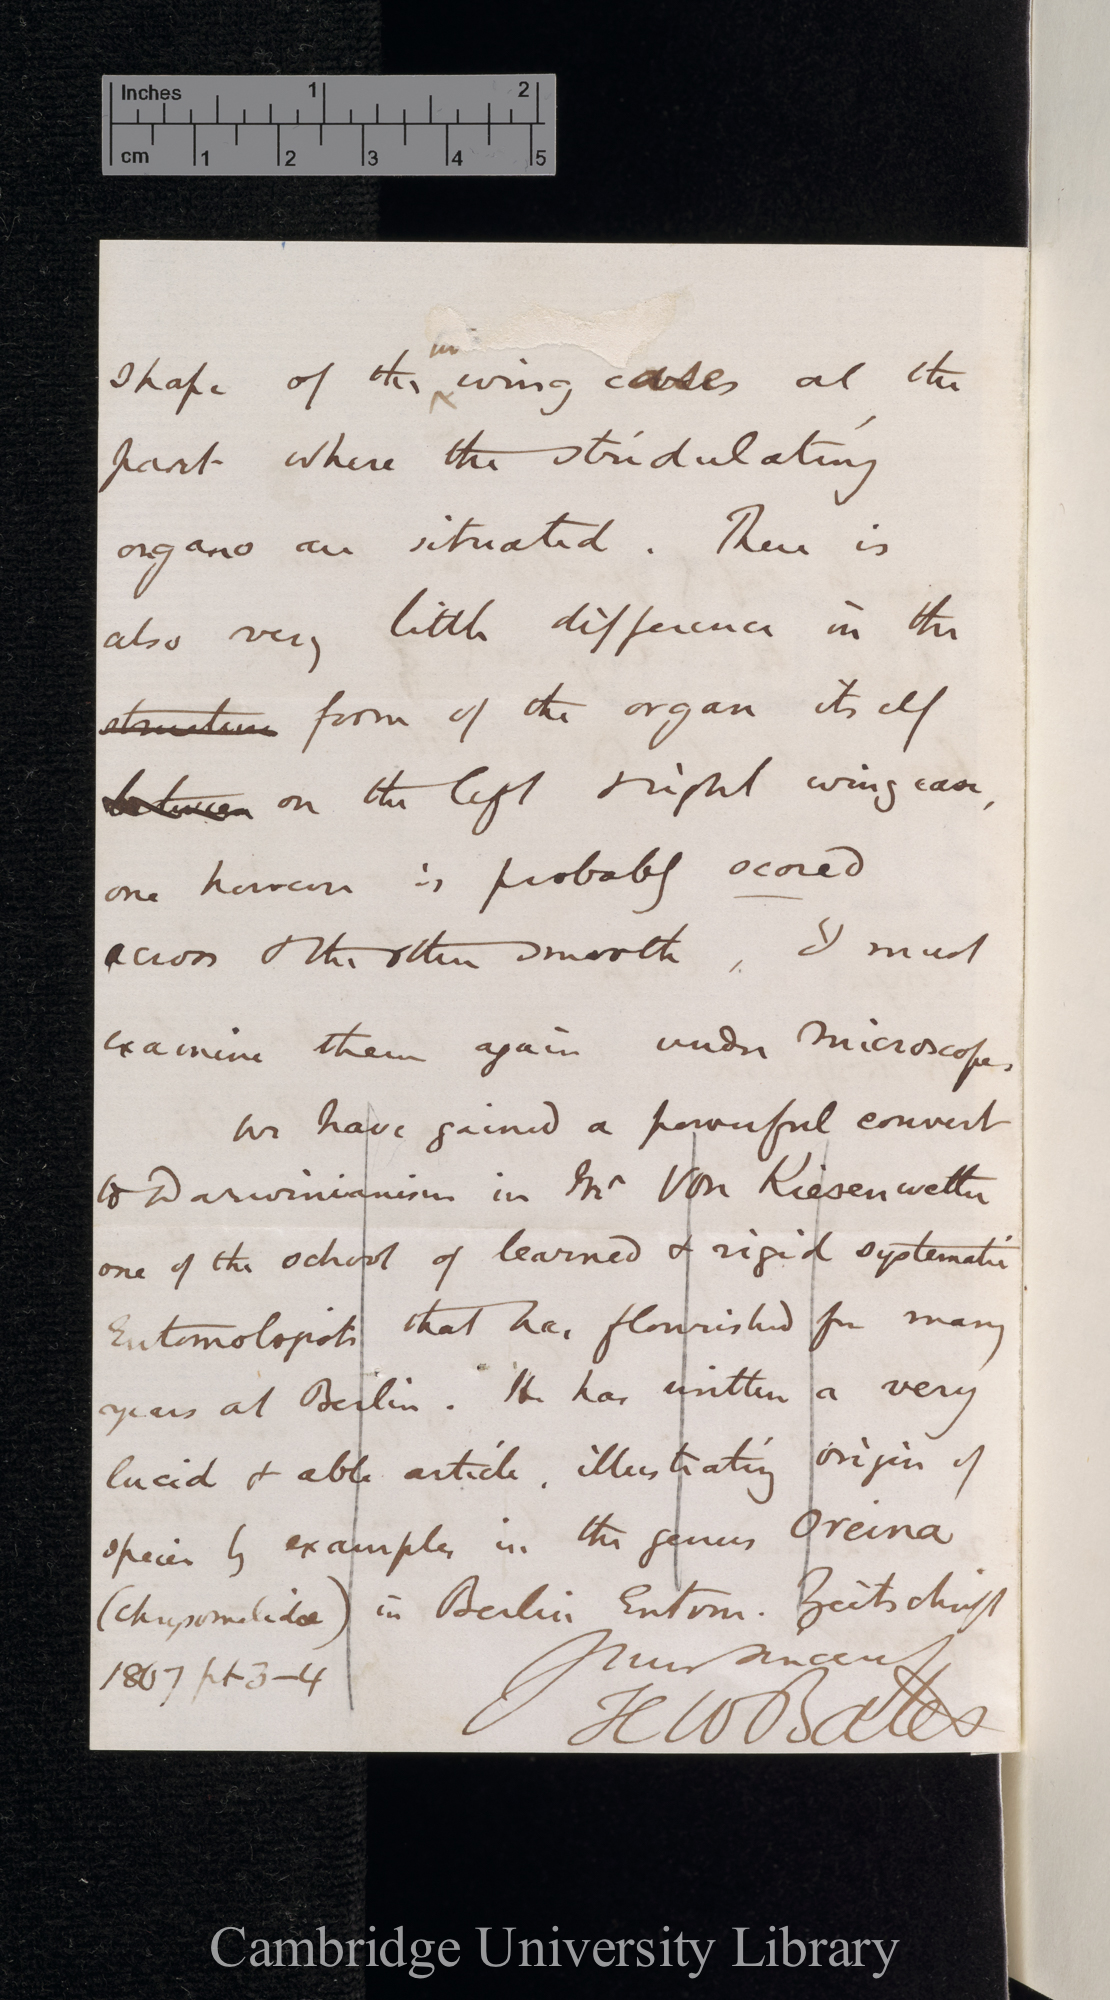 Inches 1 2
cm 1 2 3 4 5
in
shape of the wing cases at the
part where the stridulating
organs are situated. There is
also very little difference in the
structure form of the organ itself
between on the left & right wing case,
one however is probably scored
across & the other smooth, I must
examine them again under microscope.
We have gained a powerful convert
to Darwinianism in Mr Von Kiesenwetter
one of the school of learned & rigid systematic
Entomologists that has flourished for many
years at Berlin. He has written a very
lucid & able article, illustrating origin of
species by examples in the genus Oreina
(Chrysomelidae) in Berlin Entom. Zeitschrift
1867 pt 3-4
Yours sincerely
H W Bates
Cambridge University Library